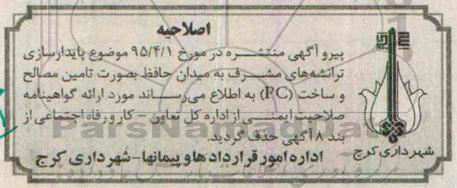 اصلاحیه
پیرو آگهی منتشره در مورخ ۹۵/۴/۱ موضوع پایدارسازی
ترانشه‌های مشرف به میدان حافظ بصورت تامین مصالح
و ساخت (PC) به اطلاع می‌رساند مورد ارائه گواهینامه
صلاحیت ایمنی از اداره کل تعاون - کار و رفاه اجتماعی از
بند ۸ آگهی حذف گردید.
اداره امور قراردادها و پیمانها - شهرداری کرج
شهرداری کرج